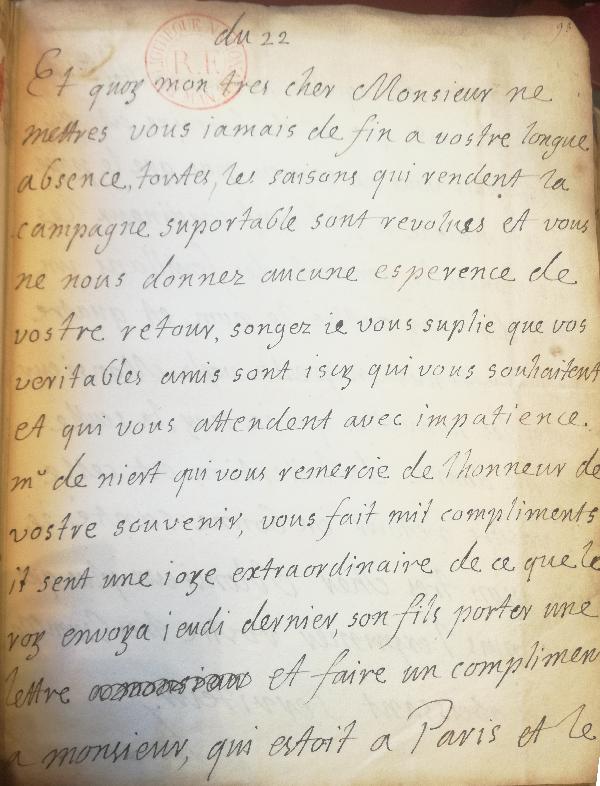 du 22
93
R.F.
Et quoy mon tres cher Monsieur ne
mettres vous iamais de fin a vostre longue
absence, toutes, les saisons qui rendent la
campagne suportable sont revolues et vous
ne nous donnez aucune esperence de
vostre retour, songez ie vous suplie que vos
veritables amis sont iscy qui vous souhaitent
et qui vous attendent avec impatience.
mr de niert qui vous remercie de lhonneur de
vostre souvenir, vous fait mil compliments
il sent une ioye extraordinaire de ce que le
roy envoya ieudi dernier, son fils porter une
lettre et faire un complimen
a monsieur, qui estoit a Paris et le